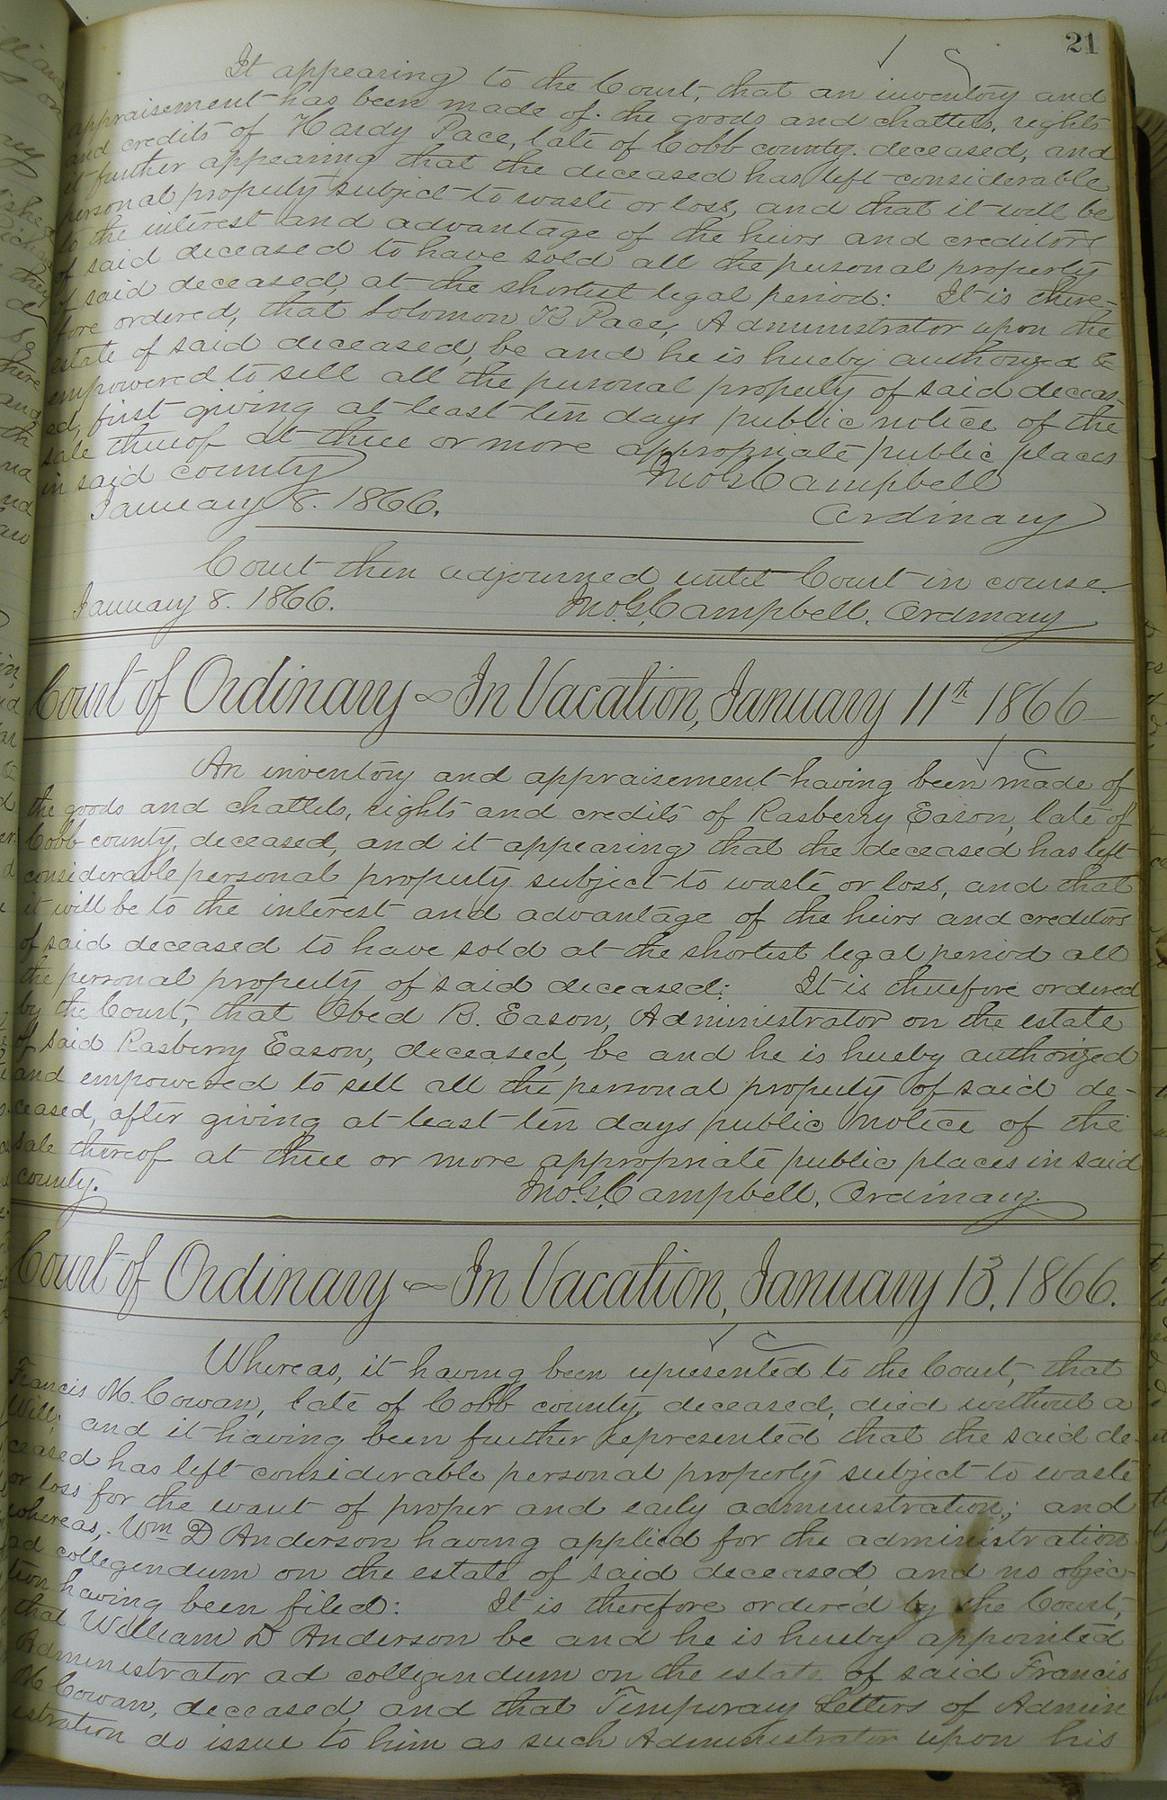 21
It appearing to the Court, that an inventory and
appraisement has been made of the goods and chattels, rights
and credits of Hardy Pace, late of Cobb county deceased, and
it further appearing that the deceased has left considerable
personal property subject to waste or loss, and that it will be
to the interest and advantage of the heirs and creditors
of said deceased to have sold all the personal property
of said deceased, at the shortest legal period: It is there-
fore ordered, that Solomon K Pace, Administrator upon the
estate of said deceased, be and he is hereby authorized &
empowered to sell all the personal property of said deceas-
ed, first giving at least ten days public notice of the
sale thereof at three or more appropriate public places
in said county
Jno. G. Campbell
January 8. 1866.
Ordinary
Court then adjourned until Court in course.
January 8. 1866. Jno. G. Campbell, Ordinary
Court of Ordinary ~ In Vacation, January 11th 1866
An inventory and appraisement having been made of
the goods and chattels, rights and credits of Rasberry Eason, late of
Cobb county, deceased, and it appearing that the deceased has left
considerable personal property subject to waste or loss, and that
it will be to the interest and advantage of the heirs and creditors
of said deceased to have sold at the shortest legal period all
the personal property of said deceased: It is therefore ordered
by the Court, that Obed B. Eason, Administrator on the estate
of said Rasberry Eason, deceased, be and he is hereby authorized
and empowered to sell all the personal property of said de-
ceased, after giving at least ten days public notice of the
sale thereof at three or more appropriate public places in said
county. Jno. G. Campbell, Ordinary.
Court of Ordinary ~ In Vacation, January 13. 1866.
Whereas, it having been represented to the Court, that
Francis M. Cowan, late of Cobb county, deceased, died without a
Will; and it having been further represented that the said de-
ceased has left considerable personal property subject to waste
or loss for the want of proper and early administration; and
whereas, Wm D Anderson having applied for the administration
ad collegendum on the estate of said deceased, and no objec-
tion having been filed: It is therefore ordered by the Court,
that William D Anderson be and he is hereby appointed
Administrator ad collegendum on the estate of said Francis
M Cowan, deceased, and that Temporary Letters of Admin
istration do issue to him as such Administrator upon his